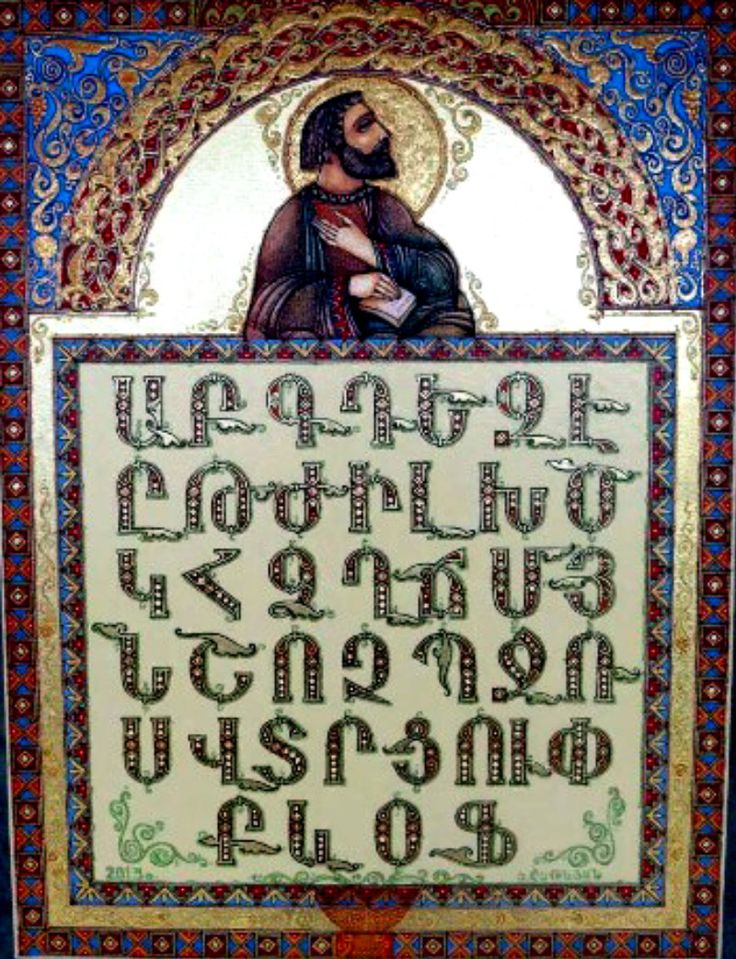 Ա Բ Գ Դ Ե Զ Է
Ը Թ Ժ Ի Լ Խ Ծ
Կ Հ Ձ Ղ Ճ Մ Յ
Ն Շ Ո Չ Պ Ջ Ռ
Ս Վ Տ Ր Ց ՈՒ Փ
Ք ԵՒ Օ Ֆ
2013